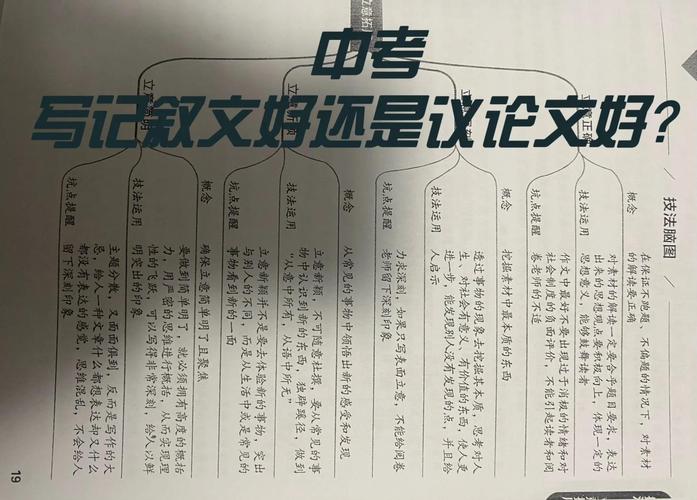 中考
写记叙文好还是议论文好?
立意拓
技法脑图
立意正确
概念
在保证不跑题、不偏题的情况下，对素材
的解读要正确
技法运用
对素材的解读一定要合乎题目要求，表达
出来的思想观点要积极向上，体现一定的
思想意义，能够鼓舞读者
坑点提醒
作文中最好不要出现过于消极的情绪和对
社会制度的负面评价，不能引起读者和阅
卷老师的不适
概念
挖掘素材中最本质的东西
技法运用
透过事物的现象去挖掘其本质，思考对人
生、对社会有意义、有价值的东西，使人更
进一步，能发现别人没有发现的点，并且给
人启示
坑点提醒
力求深刻，如果只写表面立意，不能给阅卷
老师留下深刻印象
概念
从常见的事物中领悟出新的感受和发现
技法运用
立意新颖，不可随意杜撰，要从常见的事
物中认识到新的东西，独辟蹊径，做到
“从意中所有，从语中所无”
坑点提醒
立意新颖并不是要去体验新的事物，突出
与别人的不同，而是从生活中或是常见的
事物看到新的一面
概念
确保立意简单明了且聚焦
技法运用
要做到简单明了，就必须拥有高度的概括
力，用严密的思维进行概括，从而实现理
性的飞跃，可以写得非常深刻，给人以鲜
明突出的印象
坑点提醒
主题分散，又面面俱到，反而是写作的大
忌，给人一种文章什么都想表达却又什么
都没有表达的感觉，思维混乱，不会给人
留下深刻印象
19